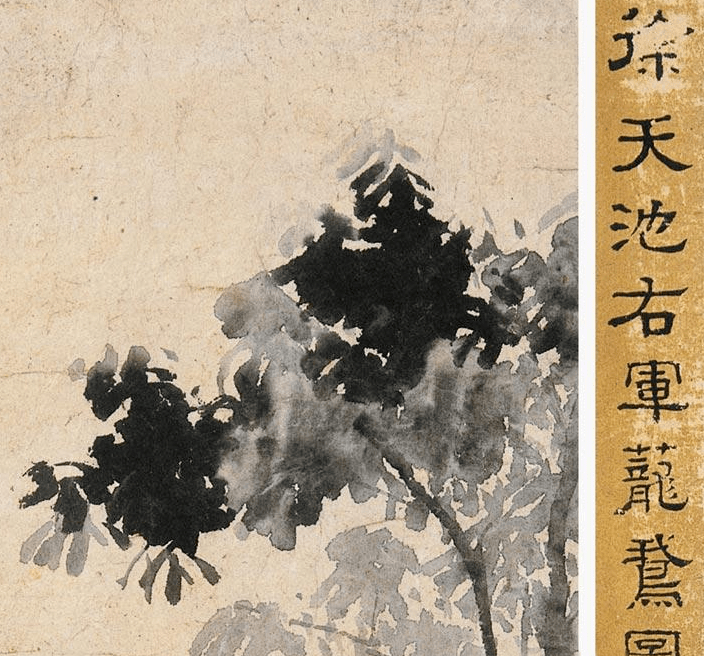 徐天池右軍蘢鵞圖